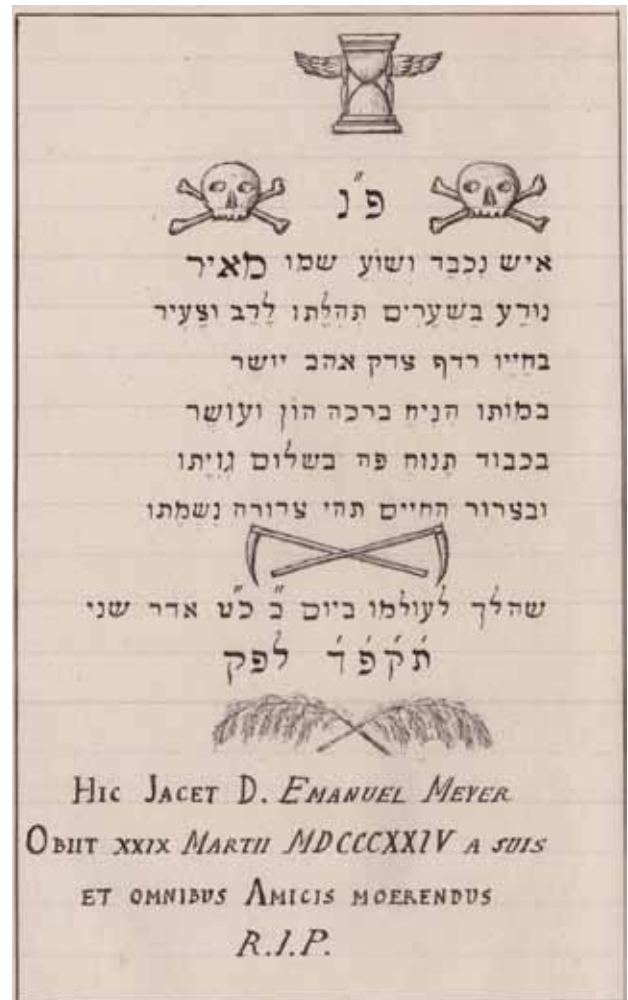 פ״נ
איש נִכְבַד וְשׁוֹעַ שמו מאיר
נוֹדַע בַשְעָרִים תְהִלָתו לָרַב וצָעִיר
בחַיָיו רדף צדק אהב יושר
במוֹתו הִנִיחַ ברכה הוֹן ועושֶר
בכבוד תָנוּח פה בשלום גְוִיָתו
ובצרור החיים תהי צרורה נִשְמָתו
שהלך לעולמו ביום ב״ כ״ט אדר שני
תֹקֹפֹדֹ לפק
HIC JACET D. EMANUEL MEYER
OBIIT XXIX MARTII MDCCCXXIV A SUIS
ET OMNIBVS AMICIS MOERENDVS
R.I.P.